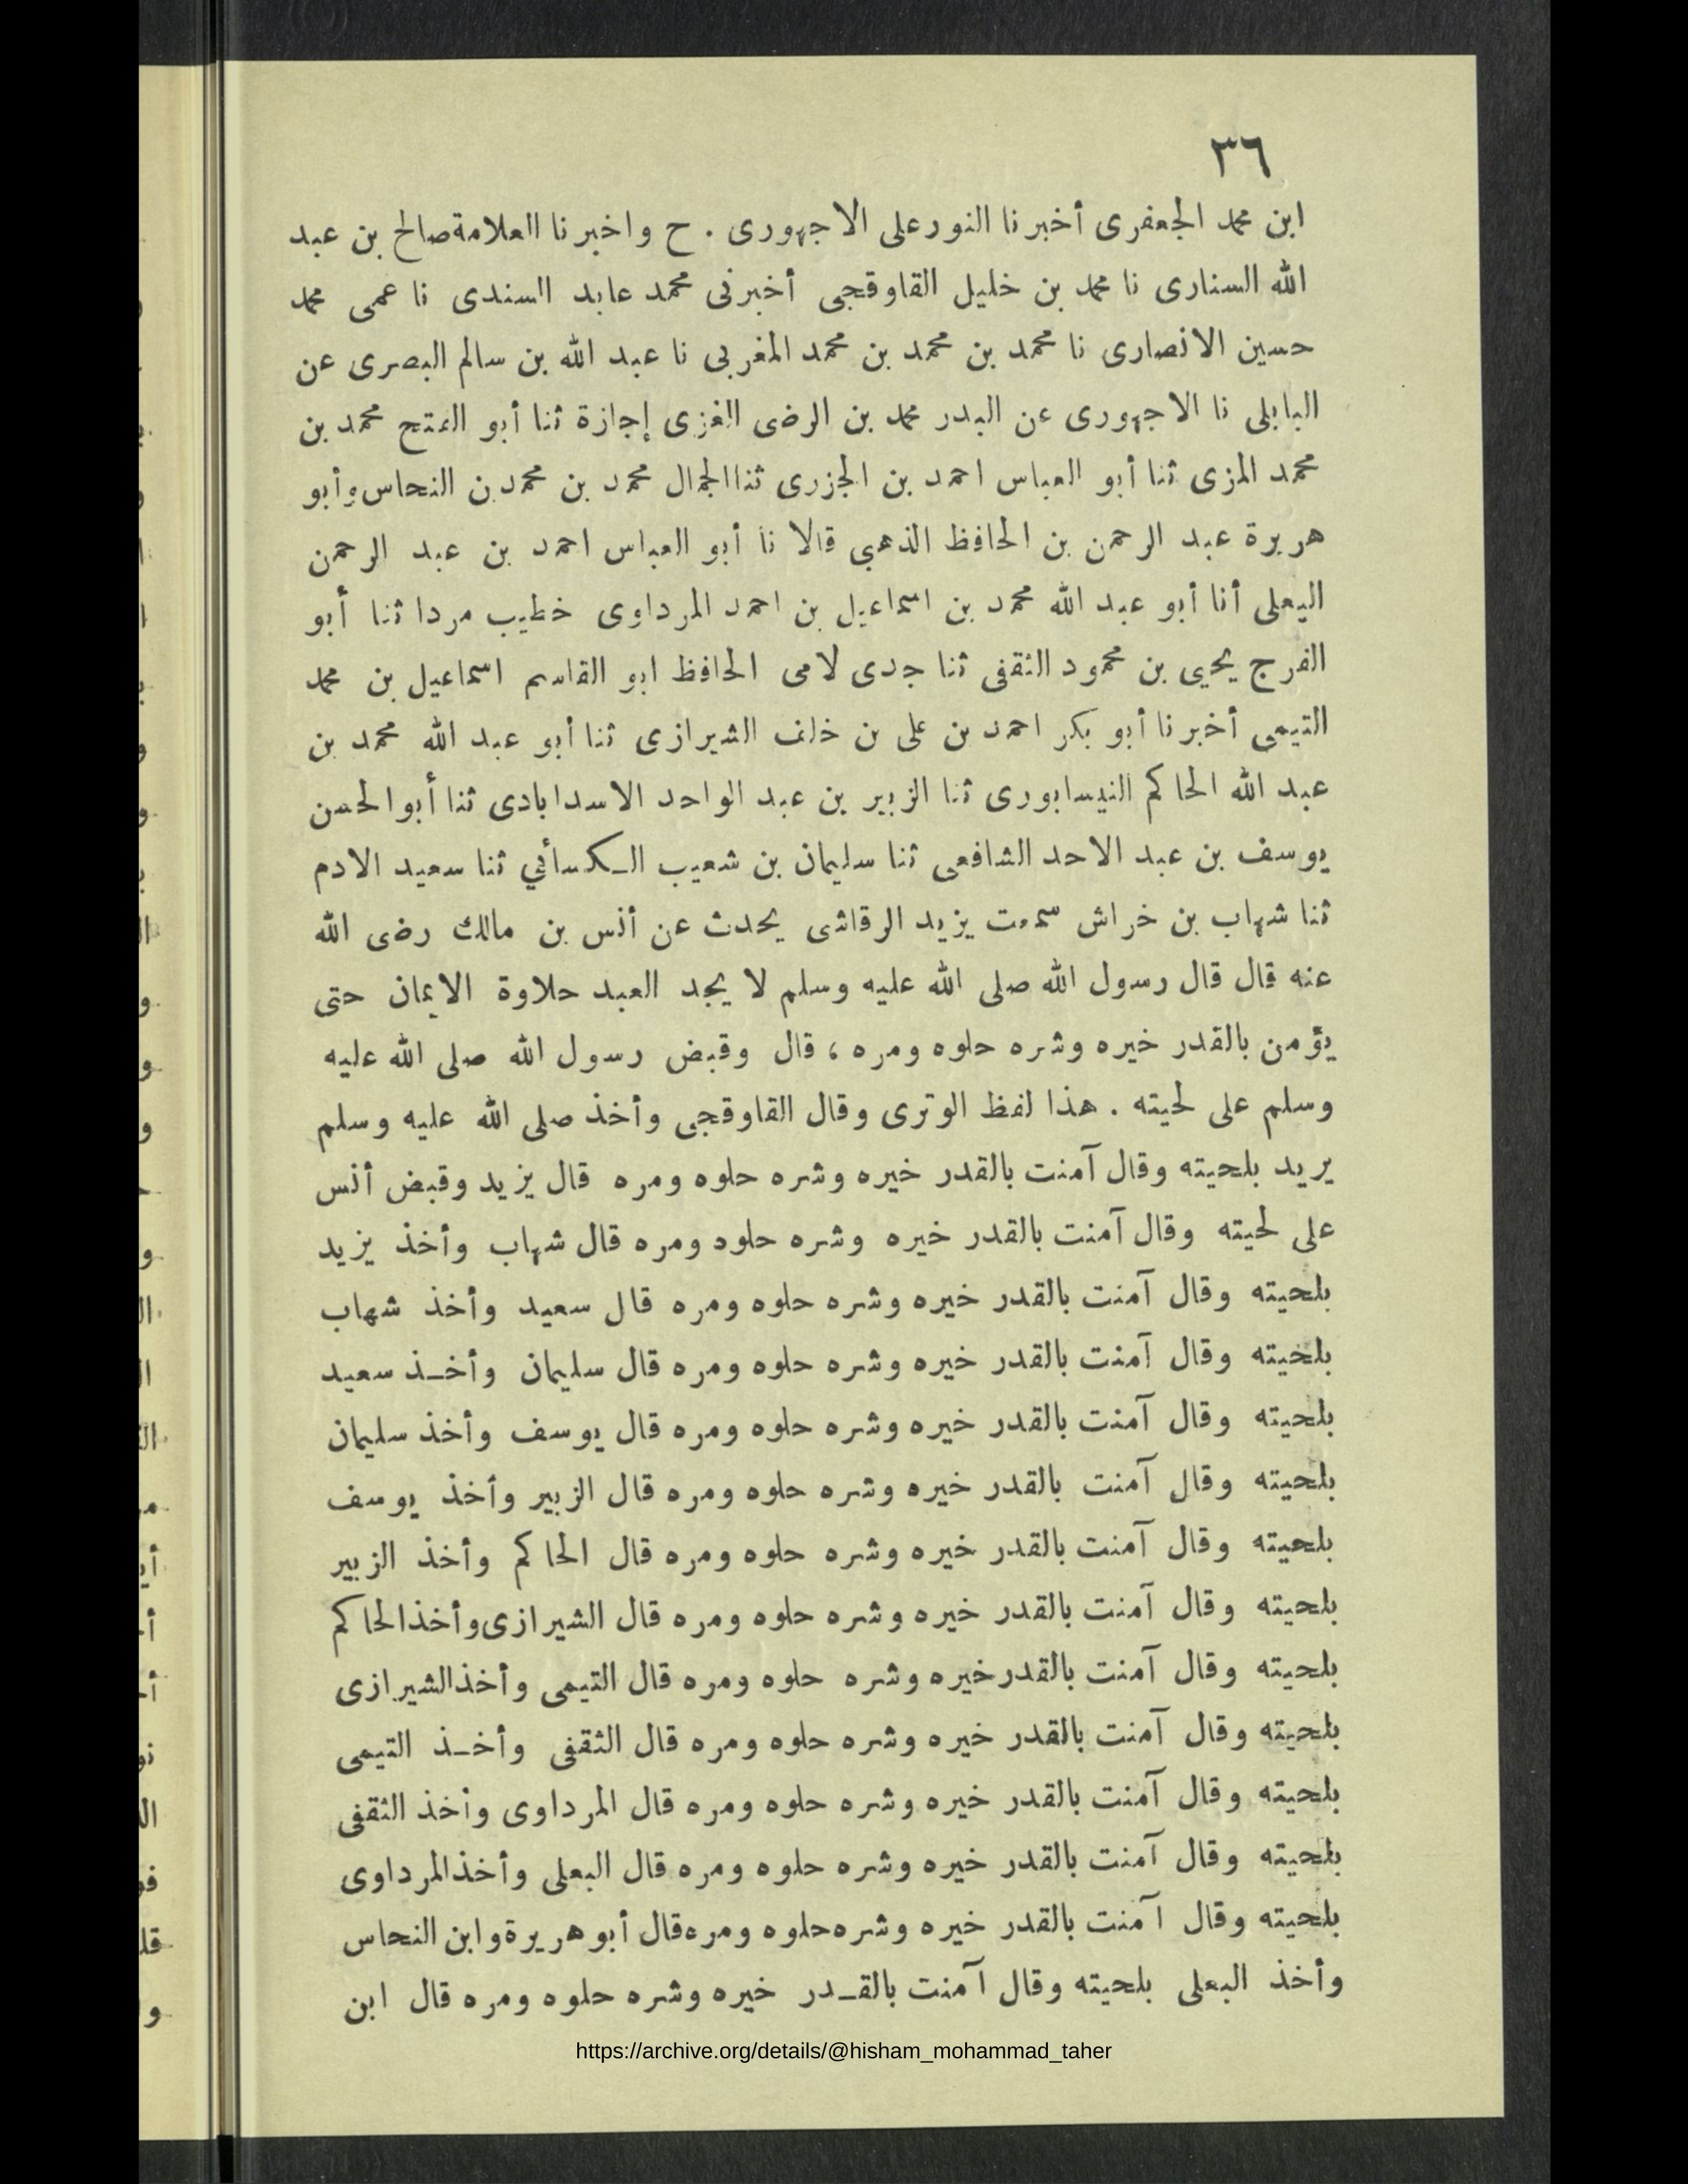 ٣٦
ابن محمد الجعفرى أخبرنا النور على الاجهورى . ح واخبرنا العلامة صالح بن عبد
الله السنارى نا محمد بن خليل القاوقجى أخبرنى محمد عابد السندى نا عمى محمد
حسين الانصارى نا محمد بن محمد بن محمد المغربى نا عبد الله بن سالم البصرى عن
البابلى نا الاجهورى عن البدر محمد بن الرضى الغزى إجازة ثنا أبو الفتح محمد بن
محمد المزى ثنا أبو العباس احمد بن الجزرى ثنا الجمال محمد بن محمد بن النحاس وأبو
هريرة عبد الرحمن بن الحافظ الذهبى قالا نا أبو العباس احمد بن عبد الرحمن
اليعلى أنا أبو عبد الله محمد بن اسماعيل بن احمد المرداوى خطيب مردا ثنا أبو
الفرج يحيى بن محمود الثقفى ثنا جدى لامى الحافظ ابو القاسم اسماعيل بن محمد
التيمى أخبرنا أبو بكر احمد بن على بن خلف الشيرازى ثنا أبو عبد الله محمد بن
عبد الله الحاكم النيسابورى ثنا الزبير بن عبد الواحد الاسدابادى ثنا أبو الحسن
يوسف بن عبد الاحد الشافعى ثنا سليمان بن شعيب الكسائي ثنا سعيد الادم
ثنا شهاب بن خراش سمعت يزيد الرقاشى يحدث عن أنس بن مالك رضى الله
عنه قال قال رسول الله صلى الله عليه وسلم لا يجد العبد حلاوة الايمان حتى
يؤمن بالقدر خيره وشره حلوه ومره ، قال وقبض رسول الله صلى الله عليه
وسلم على لحيته . هذا لفظ الوترى وقال القاوقجى وأخذ صلى الله عليه وسلم
يريد بلحيته وقال آمنت بالقدر خيره وشره حلوه ومره قال يزيد وقبض أنس
على لحيته وقال آمنت بالقدر خيره وشره حلوه ومره قال شهاب وأخذ يزيد
بلحيته وقال آمنت بالقدر خيره وشره حلوه ومره قال سعيد وأخذ شهاب
بلحيته وقال آمنت بالقدر خيره وشره حلوه ومره قال سليمان وأخذ سعيد
بلحيته وقال آمنت بالقدر خيره وشره حلوه ومره قال يوسف وأخذ سليمان
بلحيته وقال آمنت بالقدر خيره وشره حلوه ومره قال الزبير وأخذ يوسف
بلحيته وقال آمنت بالقدر خيره وشره حلوه ومره قال الحاكم وأخذ الزبير
بلحيته وقال آمنت بالقدر خيره وشره حلوه ومره قال الشيرازى وأخذ الحاكم
بلحيته وقال آمنت بالقدر خيره وشره حلوه ومره قال التيمى وأخذ الشيرازى
بلحيته وقال آمنت بالقدر خيره وشره حلوه ومره قال الثقفى وأخذ التيمى
بلحيته وقال آمنت بالقدر خيره وشره حلوه ومره قال المرداوى وأخذ الثقفى
بلحيته وقال آمنت بالقدر خيره وشره حلوه ومره قال البعلى وأخذ المرداوى
بلحيته وقال آمنت بالقدر خيره وشره حلوه ومره قال أبو هريرة وابن النحاس
وأخذ البعلى بلحيته وقال آمنت بالقدر خيره وشره حلوه ومره قال ابن
https://archive.org/details/@hisham_mohammad_taher